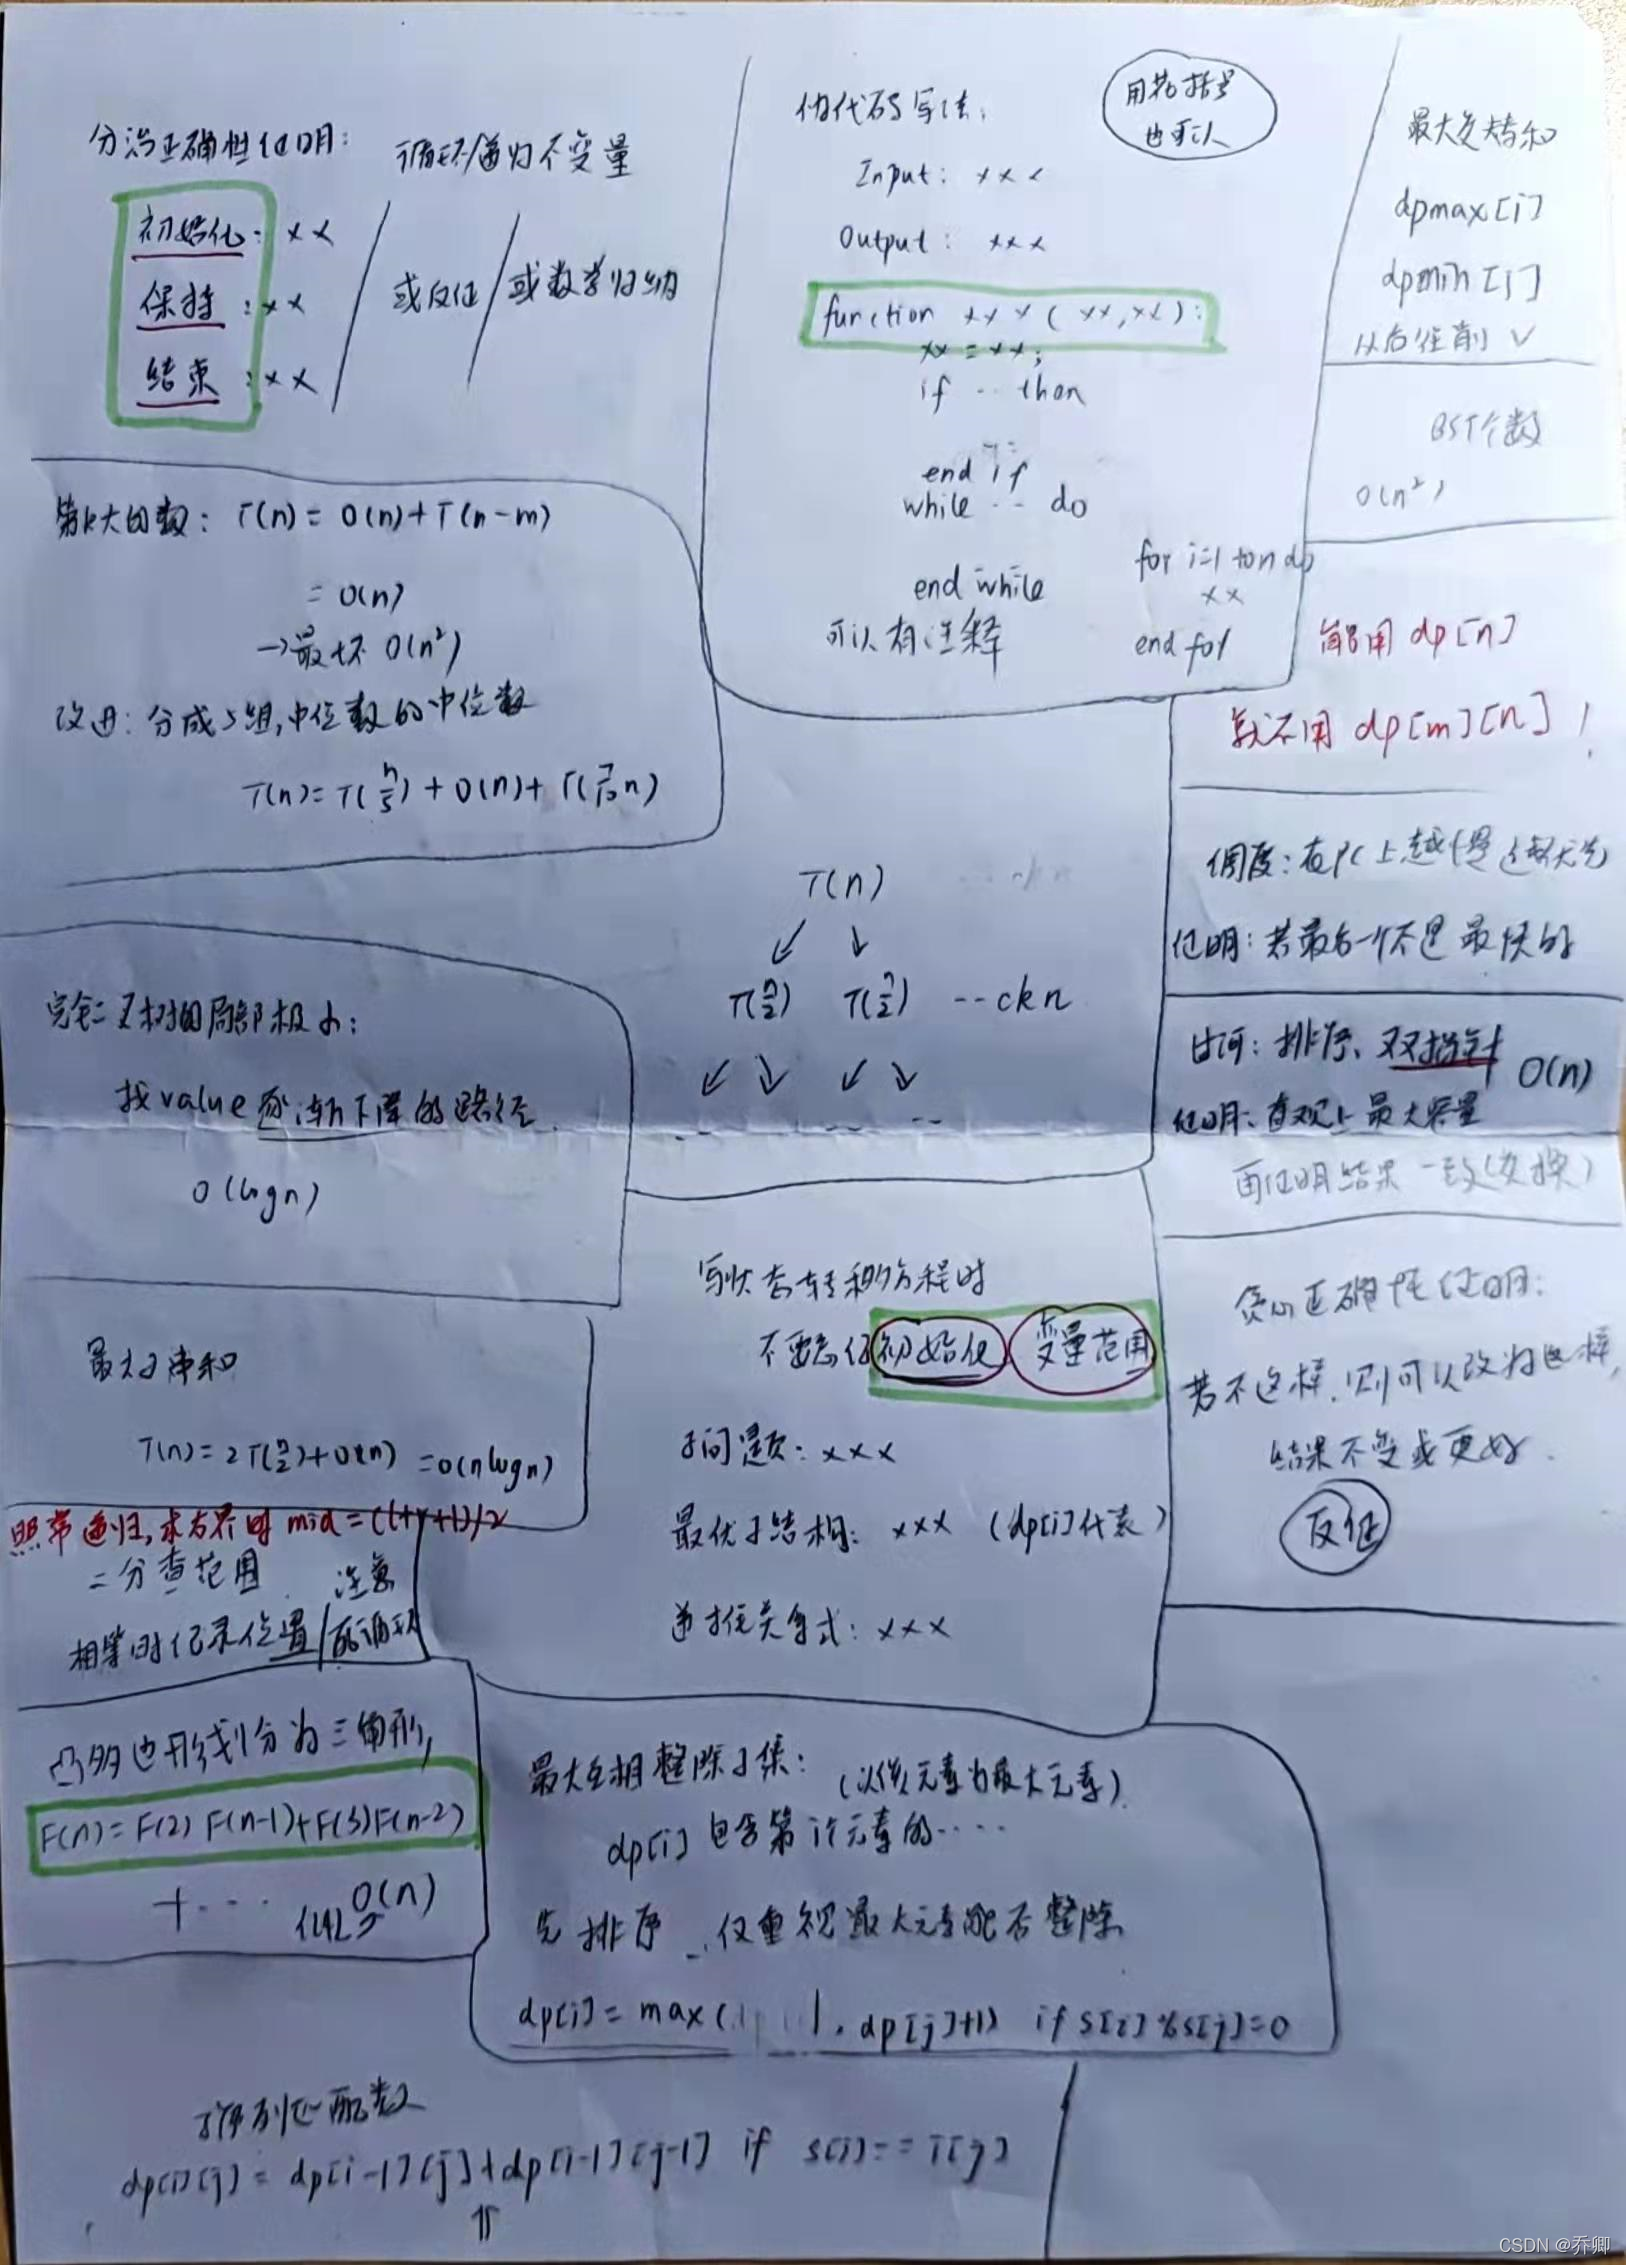 分治正确性证明：
循环/递归不变量
初始化：××
保持：××
结束：××
或反证
或数学归纳
伪代码写法：
用花括号
也可以
Input: ×××
Output: ×××
function ×××(××,××):
××=××;
if ... then
end if
while ... do
end while
for i=1 to n do
××
end for
可以有注释
最大交替和
dpmax[i]
dpmin[i]
从后往前 √
BST个数
O(n²)
能用 dp[n]
就不用 dp[m][n]！
第k大的数：T(n)=O(n)+T(n-m)
=O(n)
→最坏 O(n²)
改进：分成5组,中位数的中位数
T(n)=T(n/5)+O(n)+T(7/10 n)
T(n)
T(n/2) T(n/2) ...ckn
调度：在PC上越慢越优先
证明：若最后一个不是最快的
过河：排序、双指针 O(n)
证明：直观上最大容量
再证明结果一致(交换)
完全二叉树的局部极小：
找value逐渐下降的路径
O(logn)
写状态转移方程时
不要忘了初始化 变量范围
子问题：×××
最优子结构：××× (dp[i]代表)
递推关系式：×××
贪心正确性证明：
若不这样,则可以改为这样,
结果不变或更好.
反证
最大子串和
T(n)=2T(n/2)+O(n)=O(nlogn)
照常递归,求右界时 mid=(l+r+1)/2
二分查范围
注意
相等时记录位置/死循环
凸多边形划分为三角形,
F(n)=F(2)F(n-1)+F(3)F(n-2)
+...
O(n)
最大互相整除子集：(以该元素为最大元素)
dp[i]包含第i个元素的....
先排序 仅重视最大元素能否整除
dp[i]=max( , dp[j]+1) if s[i]%s[j]=0
子序列匹配数
dp[i][j]=dp[i-1][j]+dp[i-1][j-1] if s[i]==T[j]
⇑
CSDN @乔卿